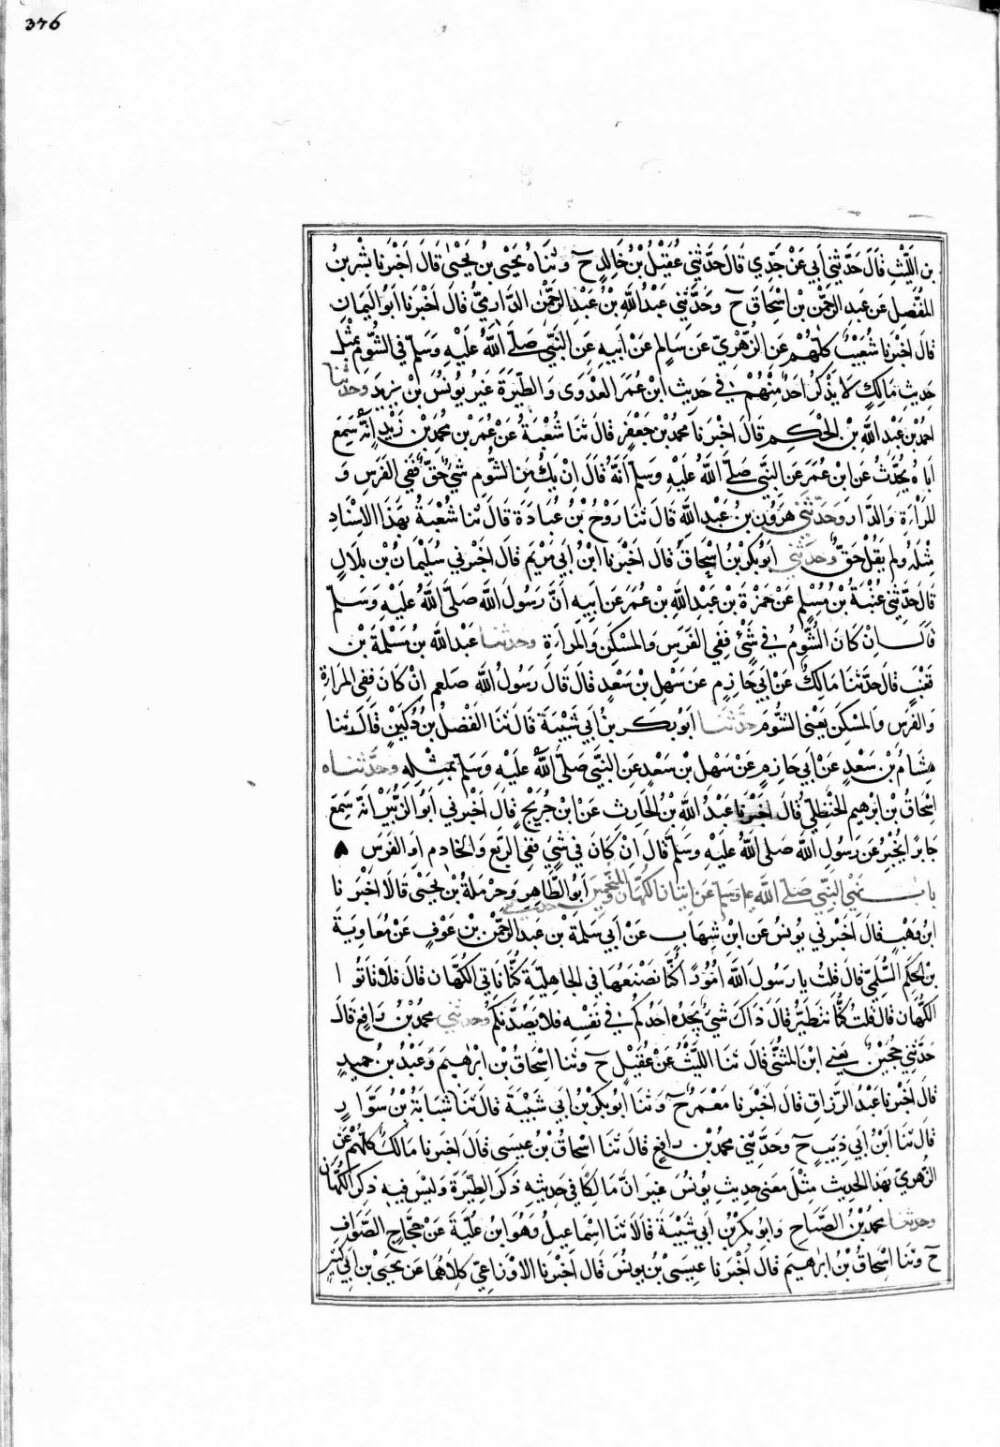 376
بن الليث قال حدثني أبي عن جدي قال حدثني عقيل بن خالد ح وثناه يحيى بن يحيى قال اخبرنا بشر بن
المفضل عن عبد الرحمن بن اسحاق ح وحدثني عبد الله بن عبد الرحمن الدارمي قال اخبرنا ابو اليمان
قال اخبرنا شعيب كلهم عن الزهري عن سالم عن ابيه عن النبي صلى الله عليه وسلم في الشوم بمثل
حديث مالك لا يذكر احد منهم في حديث ابن عمر العدوى والطيرة غير يونس بن يزيد وحدثنا
احمد بن عبد الله بن الحكم قال اخبرنا محمد بن جعفر قال ثنا شعبة عن عمر بن محمد بن زيد انه سمع
اباه يحدث عن ابن عمر عن النبي صلى الله عليه وسلم أنه قال ان يك من الشوم شي حق ففي الفرس و
المراءة والدار وحدثني هرون بن عبد الله قال ثنا روح بن عبادة قال ثنا شعبة بهذا الاسناد
مثله ولم يقل حق وحدثني ابو بكر بن اسحاق قال اخبرنا ابن ابي مريم قال اخبرني سليمان بن بلال
قال حدثني عتبة بن مسلم عن حمزة بن عبد الله بن عمر عن ابيه ان رسول الله صلى الله عليه وسلم
قال ان كان الشوم في شئ ففي الفرس والمسكن والمراءة وحدثنا عبد الله بن مسلمة بن
قعنب قال حدثنا مالك عن ابي حازم عن سهل بن سعد قال قال رسول الله صلعم ان كان ففي المراءة
والفرس والمسكن يعني الشوم حدثنا ابو بكر بن أبي شيبة قال ثنا الفضل بن دكين قال ثنا
هشام بن سعد عن أبي حازم عن سهل بن سعد عن النبي صلى الله عليه وسلم بمثله وحدثناه
اسحاق بن ابرهيم الحنظلي قال اخبرنا عبد الله بن الحارث عن ابن جريج قال اخبرني ابو الزبير انه سمع
جابرا يخبر عن رسول الله صلى الله عليه وسلم قال ان كان في شي ففي الربع والخادم او الفرس
باب نهي النبي صلى الله عليه وسلم عن اتيان الكهان والمنجمين حدثني ابو الطاهر وحرملة بن يحيى قالا اخبرنا
ابن وهب قال اخبرني يونس عن ابن شهاب عن أبي سلمة بن عبد الرحمن بن عوف عن معاوية
بن الحكم السلمي قال قلت يا رسول الله امورا كنا نصنعها في الجاهلية كنا ناتي الكهان قال فلا تاتوا
الكهان قال قلت كنا نتطير قال ذاك شي يجده احدكم في نفسه فلا يصدنكم وحدثني محمد بن رافع قال
حدثني حجين يعني ابن المثنى قال ثنا الليث عن عقيل ح وثنا اسحاق بن ابرهيم وعبد بن حميد
قال اخبرنا عبد الرزاق قال اخبرنا معمر ح وثنا ابو بكر بن ابي شيبة قال ثنا شبابة بن سوار
قال ثنا ابن أبي ذيب ح وحدثني محمد بن رافع قال ثنا اسحاق بن عيسى قال اخبرنا مالك كلهم عن
الزهري بهذا الحديث مثل معنى حديث يونس غير ان مالكا في حديثه ذكر الطيرة وليس فيه ذكر الكهان
وحدثنا محمد بن الصباح وابو بكر بن ابي شيبة قالا ثنا اسماعيل وهو ابن علية عن حجاج الصواف
ح وثنا اسحاق بن ابرهيم قال اخبرنا عيسى بن يونس قال اخبرنا الاوزاعي كلاهما عن يحيى بن ابي كثير